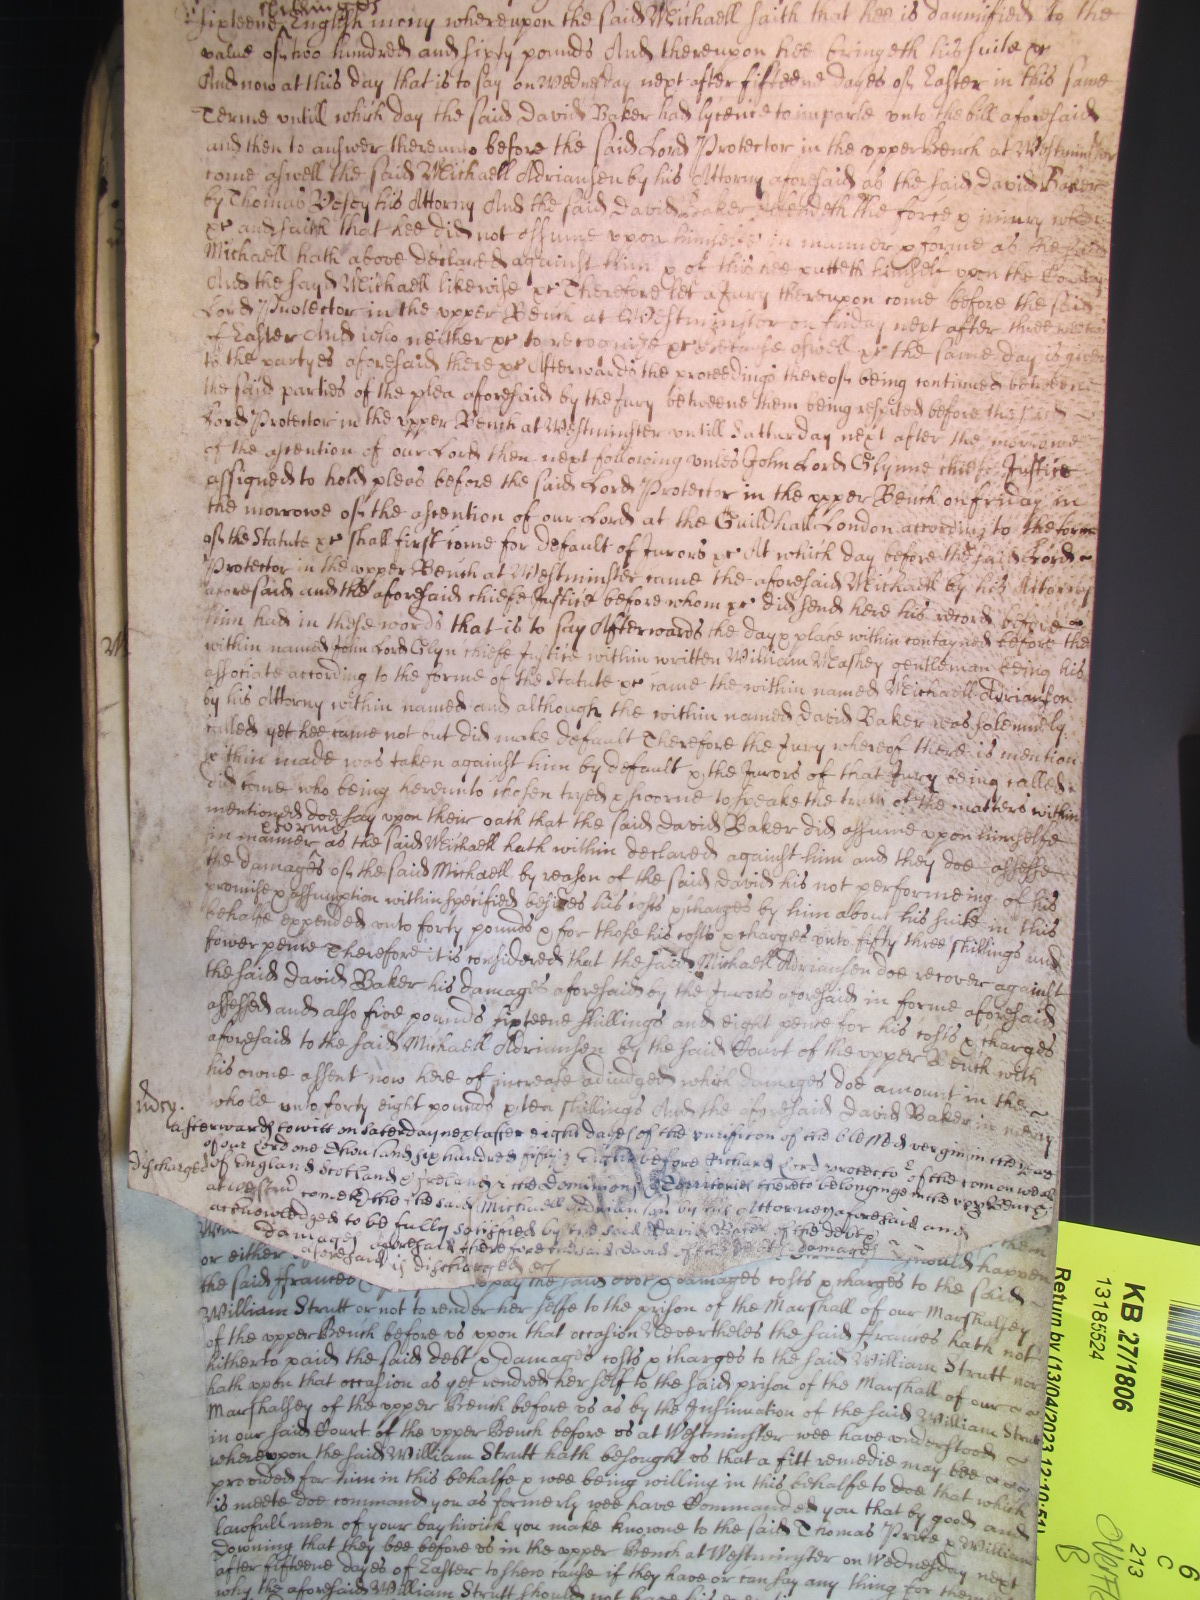 shillings
sixteene English mony whereupon the said Michaell saith that hee is damnified to the
value of two hundred and sixty pounds And thereupon hee bringeth his suite &c
And now at this day that is to say on Wednesday next after fifteene dayes of Easter in this same
Terme untill which day the said David Baker had lycence to imparle unto the bill aforesaid
and then to answer thereunto before the said Lord Protector in the upper Bench at Westminster
come aswell the said Michaell Adriansen by his Attorny aforesaid as the said David Baker
by Thomas Vesey his Attorny And the said David Baker defendeth the force & injury when
&c and saith that hee did not assume upon himselfe in manner & forme as the said
Michaell hath above declared against him & of this hee putteth himself upon the Contry
And the sayd Michaell likewise &c Therefore let a Jury thereupon come before the said
Lord Protector in the upper Bench at Westminster on friday next after three weekes
of Easter And who neither &c to recognize &c because aswell &c the same day is given
to the partyes aforesaid there &c Afterwards the proceedings thereof being continued betweene
the said parties of the plea aforesaid by the Jury betweene them being respited before the said
Lord Protector in the upper Bench at Westminster untill Satturday next after the morrowe
of the ascention of our Lord then next following unles John Lord Glynne chiefe Justice
assigned to hold pleas before the said Lord Protector in the upper Bench on friday in
the morrowe of the ascention of our Lord at the Guildhall London according to the forme
of the Statute &c shall first come for default of Jurors &c At which day before the said Lord
Protector in the upper Bench at Westminster came the aforesaid Michaell by his Attorny
aforesaid and the aforesaid chiefe Justice before whom &c did send here his record before
him had in these words that is to say Afterwards the day & place within contayned before the
within named John Lord Glyn chiefe Justice within written William Maskey gentleman being his
associate according to the forme of the Statute &c came the within named Michaell Adrianson
by his Attorny within named and although the within named David Baker was solemnely
called yet hee came not but did make default Therefore the Jury whereof there is mention
within made was taken against him by default & the Jurors of that Jury being called
did come who being hereunto chosen tryed & sworne to speake the truth of the matters within
mentioned doe say upon their oath that the said David Baker did assume upon himselfe
& forme
in manner as the said Michaell hath within declared against him and they doe assesse
the damages of the said Michaell by reason of the said David his not performeing of his
promise & assumption within specified besides his costs & charges by him about his suite in this
behalfe expended unto forty pounds & for those his costs & charges unto fifty three shillings and
fower pence Therefore it is considered that the said Michaell Adriansen doe recover against
the said David Baker his damages aforesaid by the Jurors aforesaid in forme aforesaid
assessed and also five pounds sixteene shillings and eight pence for his costs & charges
aforesaid to the said Michaell Adriansen by the said Court of the upper Bench with
his owne assent now here of increase adiudged which damages doe amount in the
whole unto forty eight pounds & ten shillings And the aforesaid David Baker in mercy
mercy.
afterwards to witt on Saterday next after eight dayes of the purificon of the blessed vergin in the yeare
of our Lord one thousand six hundred fifty & eight before Richard Lord protector of the comonwealth
discharged
of England Scotland & Ireland & the dominions & Territories thereto belonginge in the upp Bench
at westmr cometh the said Michaell Adrianson by his Attorney aforesaid and
acknowledged to be fully satisfied by the said David Baker of the
damages aforesaid therefore the said david of the damages
aforesaid is discharged &c
them
or either should happen
the said Frances pay the said debt & damages costs & charges to the said
William Strutt or not to render her selfe to the prison of the Marshall of our Marshalsey
of the upper Bench before us upon that occasion Nevertheles the said Frances hath not
hitherto paid the said debt & damages costs & charges to the said William Strutt nor
hath upon that occasion as yet rendred her self to the said prison of the Marshall of our
Marshalsey of the upper Bench before us as by the Insinuation of the said William Strutt
in our said Court of the upper Bench before us at Westminster wee have understood
whereupon the said William Strutt hath besought us that a fitt remedie may bee
provided for him in this behalfe & wee being willing in this behalfe to doe that which
is meete doe command you as formerly wee have Commanded you that by good and
lawfull men of your baylwick you make knowne to the said Thomas Price & William
Downing that they bee before us in the upper Bench at Westminster on Wednesday next
after fifteene dayes of Easter to shew cause if they have or can say any thing for them
why the aforesaid William Strutt should not have his
KB 27/1806
13185524
Return by (13/04/2023 12:10:51)
6
C
213
B